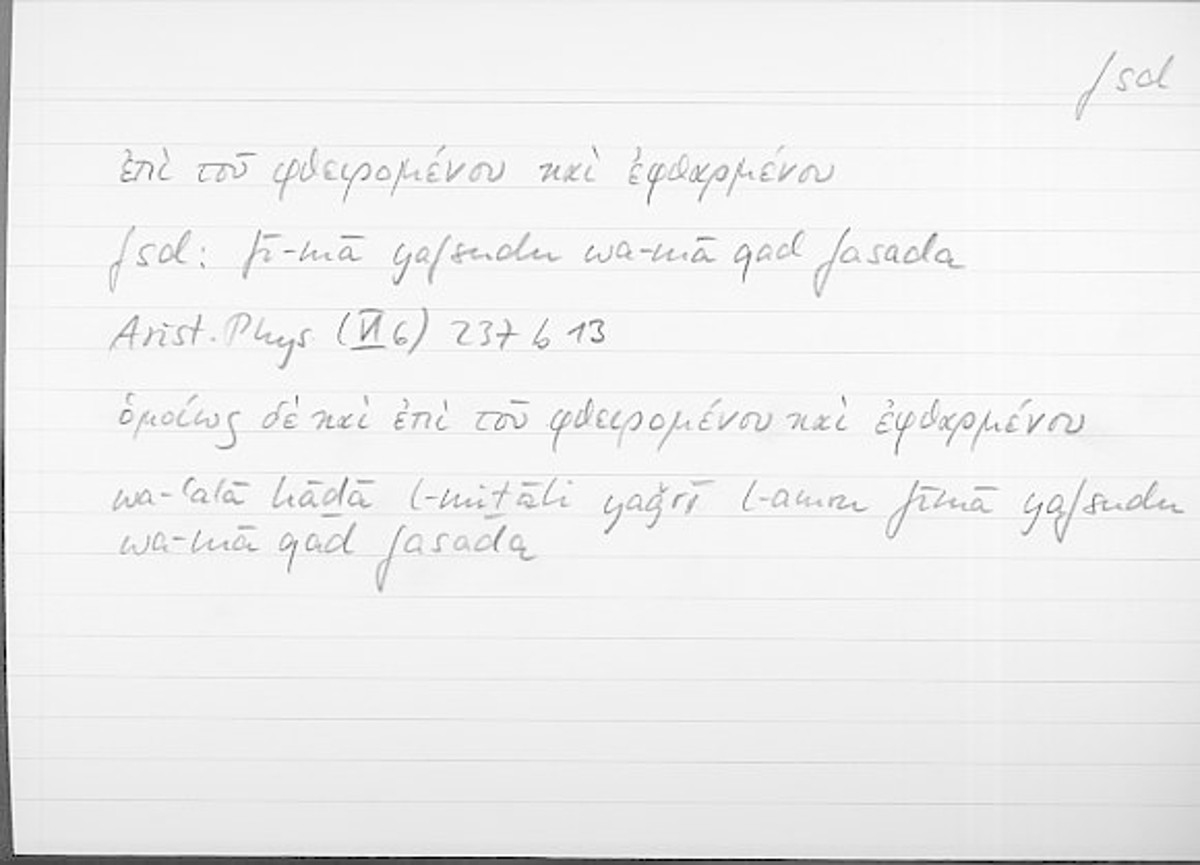 fsd
ἐπὶ τοῦ φθειρομένου καὶ ἐφθαρμένου
fsd: fī-mā yafsudu wa-mā qad fasada
Arist. Phys. (VI 6) 237 b 13
ὁμοίως δὲ καὶ ἐπὶ τοῦ φθειρομένου καὶ ἐφθαρμένου
wa-ʿalā hāḏā l-miṯāli yaǧrī l-amru fīmā yafsudu
wa-mā qad fasada